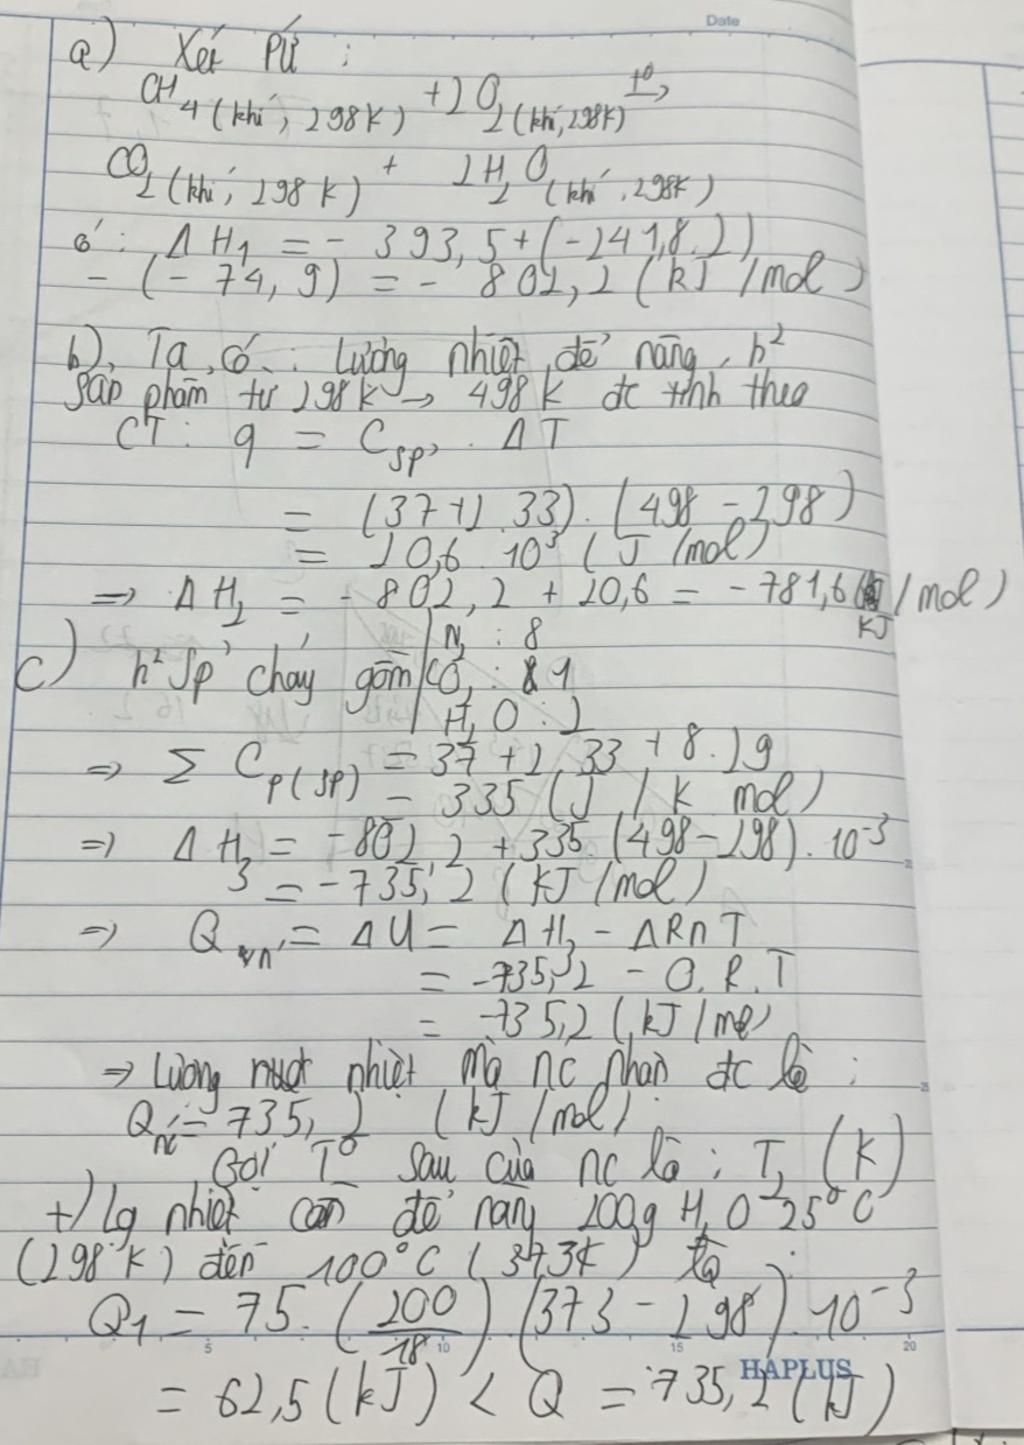 Date
a) Xét PỨ :
CH4 (khí, 298K) + 2O2 (khí, 298K) t°→
CO2 (khí, 298 K) + 2H2O (khí, 298K)
có : ΔH1 = - 393,5 + (-241,8.2)
- (- 74,9) = - 802,2 (kJ /mol)
b), Ta có : Lượng nhiệt để nâng h²
sản phẩm từ 298K → 498 K đc tính theo
CT : q = Csp' . ΔT
= (37+2.33). (498 - 298)
= 20,6 . 10³ (J /mol)
=> ΔH2 = - 802,2 + 20,6 = - 781,6 (kJ/mol)
c) h² sp' cháy gồm N2 : 8
CO2 : 1
H2O : 2
=> Σ Cp(sp) = 37 + 2.33 + 8.29
= 335 (J / K mol)
=> ΔH3 = -802,2 + 335. (498-298). 10⁻³
= -735,2 (kJ /mol)
=> Q = ΔU = ΔH3 - ΔRnT
= -735,2 - 0.R.T
= -735,2 (kJ /mol)
=> Lượng nhiệt mà nc nhận đc là :
Qnc = 735,2 (kJ /mol)
Gọi T° sau của nc là : T2 (K)
+) Lg nhiệt cần để nâng 200g H2O 25°C
(298 K) đến 100°C (373K) là :
Q1 = 75. (200/18) (373 - 298). 10⁻³
= 62,5 (kJ) < Q = 735,2 (kJ)
5 10 15 20
HAPLUS